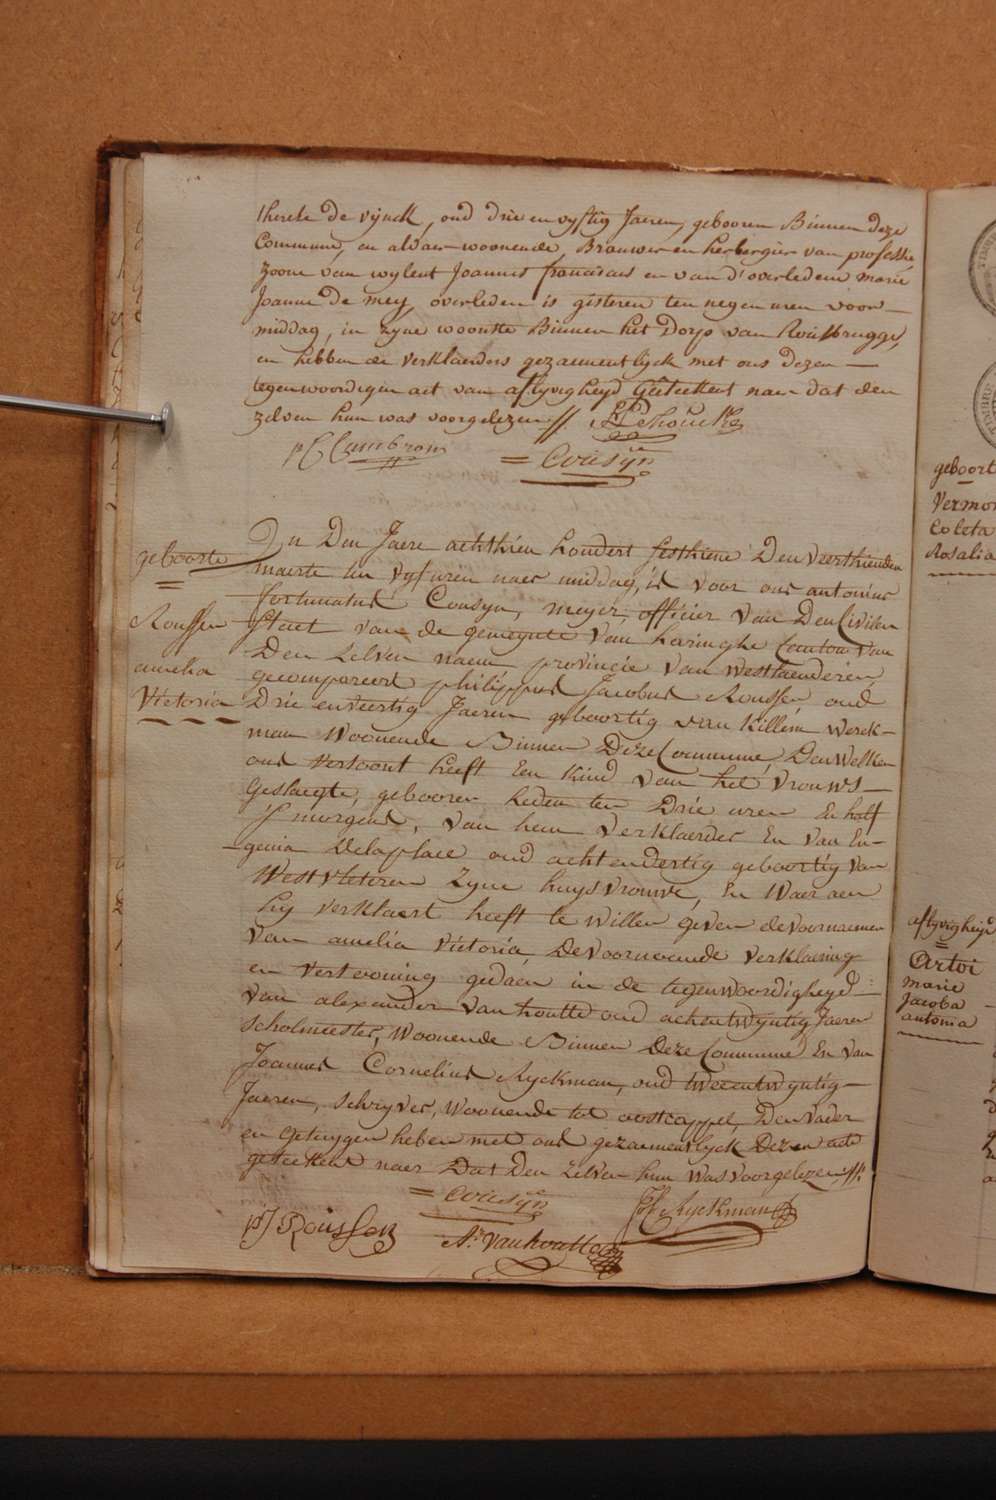 therese de vynck, oud drie en vyftig Jaeren, gebooren Binnen deze
Commune, en aldaer woonende, Brouwer en herbergier van professie,
zoone van wylent Joannes franciscus en van d'overledene marie
Joanne de mey, overleden is gisteren ten negen uren voor
middag, in zyne woonste Binnen het Dorp van Rousbrugge,
en hebben de verklaerders gezaementlyck met ons dezen
tegenwoordigen act van aflyvigheyd geteekent naer dat den
zelven hun was voorgelezen //.
p C Cambron = Cousyn
geboorte
=
Roussen
amelia
Victoria
In Den Jaere achthien hondert sesthiene Den veerthienden
maerte ten vyf uren naer middag, is voor ons antonius
fortunatus Cousyn, meyer, officier van Den Civilen
Staet van de gemeynte van haringhe Canton van
Den zelven naem provincie van westvlaenderen,
gecompareert philippus Jacobus Roussen oud
Drie en veertig Jaeren geboortig van Killem werck-
man woonende Binnen Deze Commune, Den welken
ons vertoont heeft Een Kind van het vrouws-
geslagte, gebooren heden ten Drie uren En half
s' morgens, van hem verklaerder En van Eu-
genia Delaplace oud achtendertig geboortig van
Westvleteren zyne huysvrouwe, En waer aen
hy verklaert heeft te willen geven de voornaemen
van amelia victoria, De voornoemde verklaering
en vertooning gedaen in de tegenwoordigheyd
van alexander van houtte oud achentwyntig Jaeren
scholmeester, woonende Binnen Deze Commune En van
Joannes Cornelius Ryckman, oud tweeentwyntig
Jaeren, schryver, woonende tot oostcappel, Den vader
en getuygen heben met ons gezaementlyck Dezen acte
geteekent naer Dat Den zelven hun was voorgelezen //.
= Cousyn Ryckman
pJ Roussen Ar. vanhoutte
geboort
Vermo
Coleta
Rosalia
aflyvigheyd
=
Artoi
marie
Jacoba
antonia